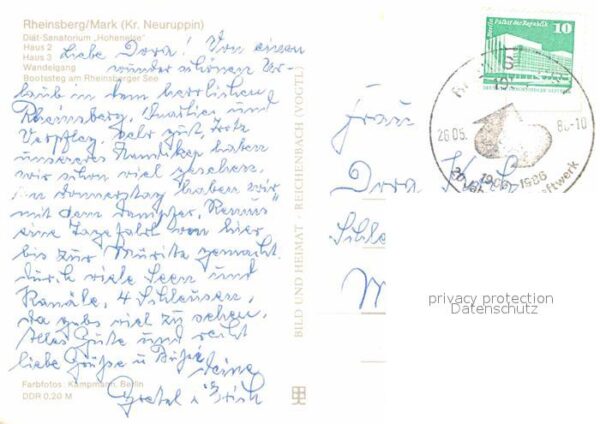 Rheinsberg/Mark (Kr. Neuruppin)
Diät-Sanatorium „Hohenelse"
Haus 2
Haus 3
Wandelgang
Bootssteg am Rheinsberger See
Liebe Dora! Von einen
wunderschönen Ur-
laub in dem herrlichen
Rheinsberg, Quartier und
Verpfleg. sehr gut, trotz
unseres Handikap haben
wir schon viel gesehen.
Am Donnerstag haben wir
mit dem Dampfer „Remus"
eine Tagefahrt von hier
bis zur Müritz gemacht.
durch viele Seen und
Kanäle, 4 Schleusen,
da gabs viel zu sehen.
Alles Gute und recht
liebe Grüße u
Deine
Gretel u. Erich
Farbfotos: Kampmann, Berlin
DDR 0,20 M
BILD UND HEIMAT · REICHENBACH (VOGTL)
Palast der Republik
10
26.05.
-10
1906-1986
Frau
Dora
privacy protection
Datenschutz